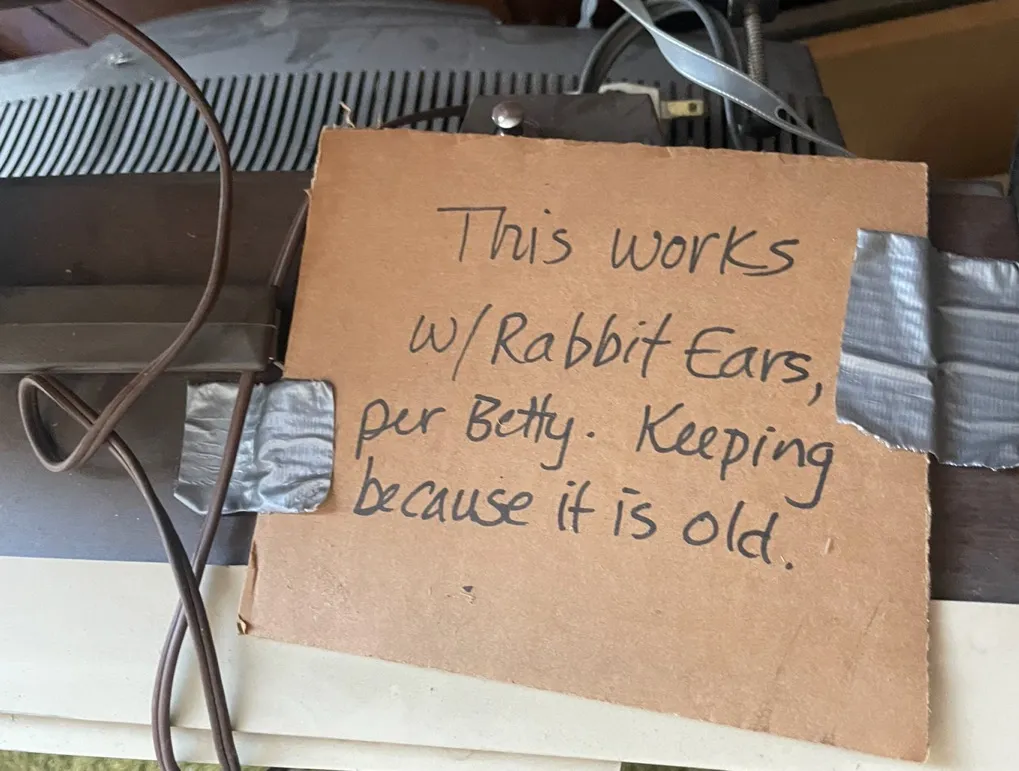 This works
w/Rabbit Ears,
per Betty. Keeping
because it is old.